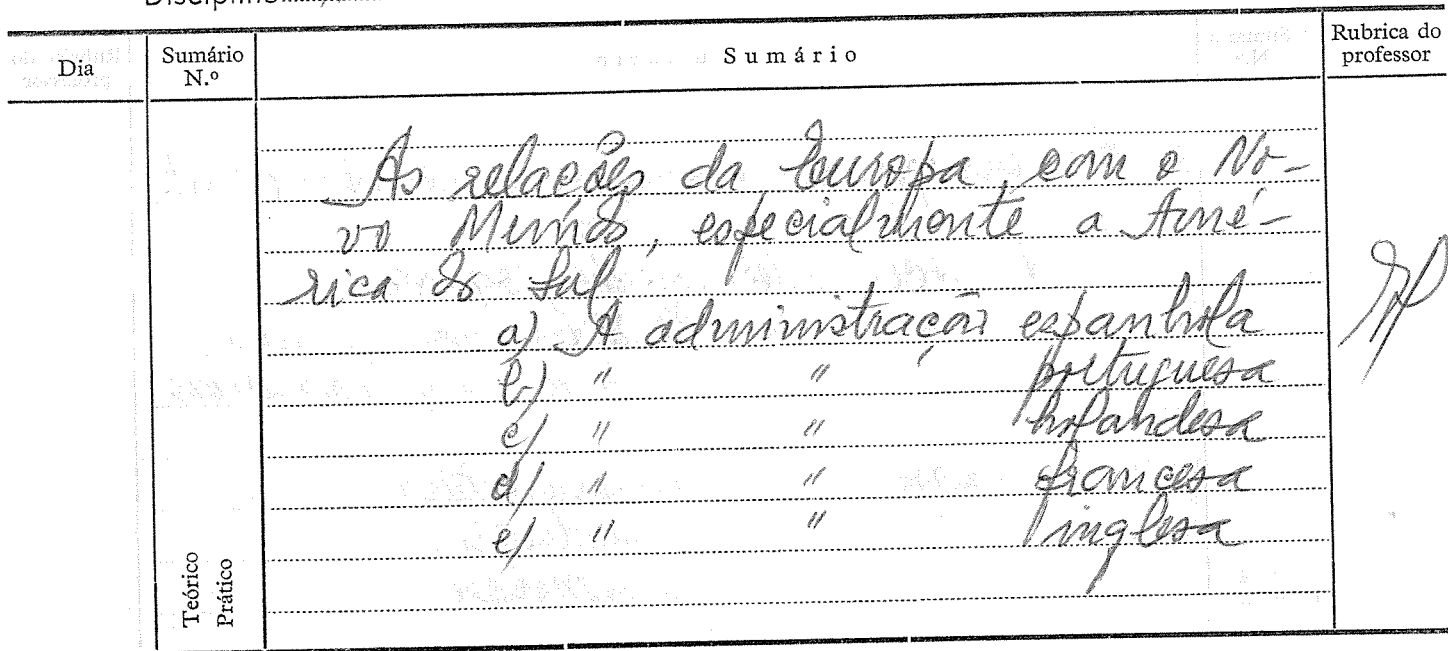 Disciplina
Dia
Sumário N.º
Sumário
Rubrica do professor
As relações da Europa, com o No-
vo Mundo, especialmente a Amé-
rica do Sul
a) A administração espanhola
b) " " portuguesa
c) " " holandesa
d) " " francesa
e) " " inglesa
Teórico
Prático